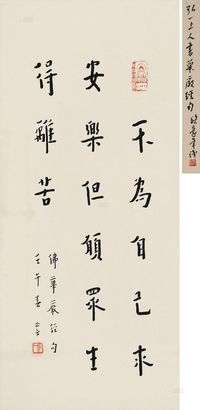 不為自己求
安樂但願眾生
得離苦
佛華嚴經句
壬午春
弘一上人書華嚴經句